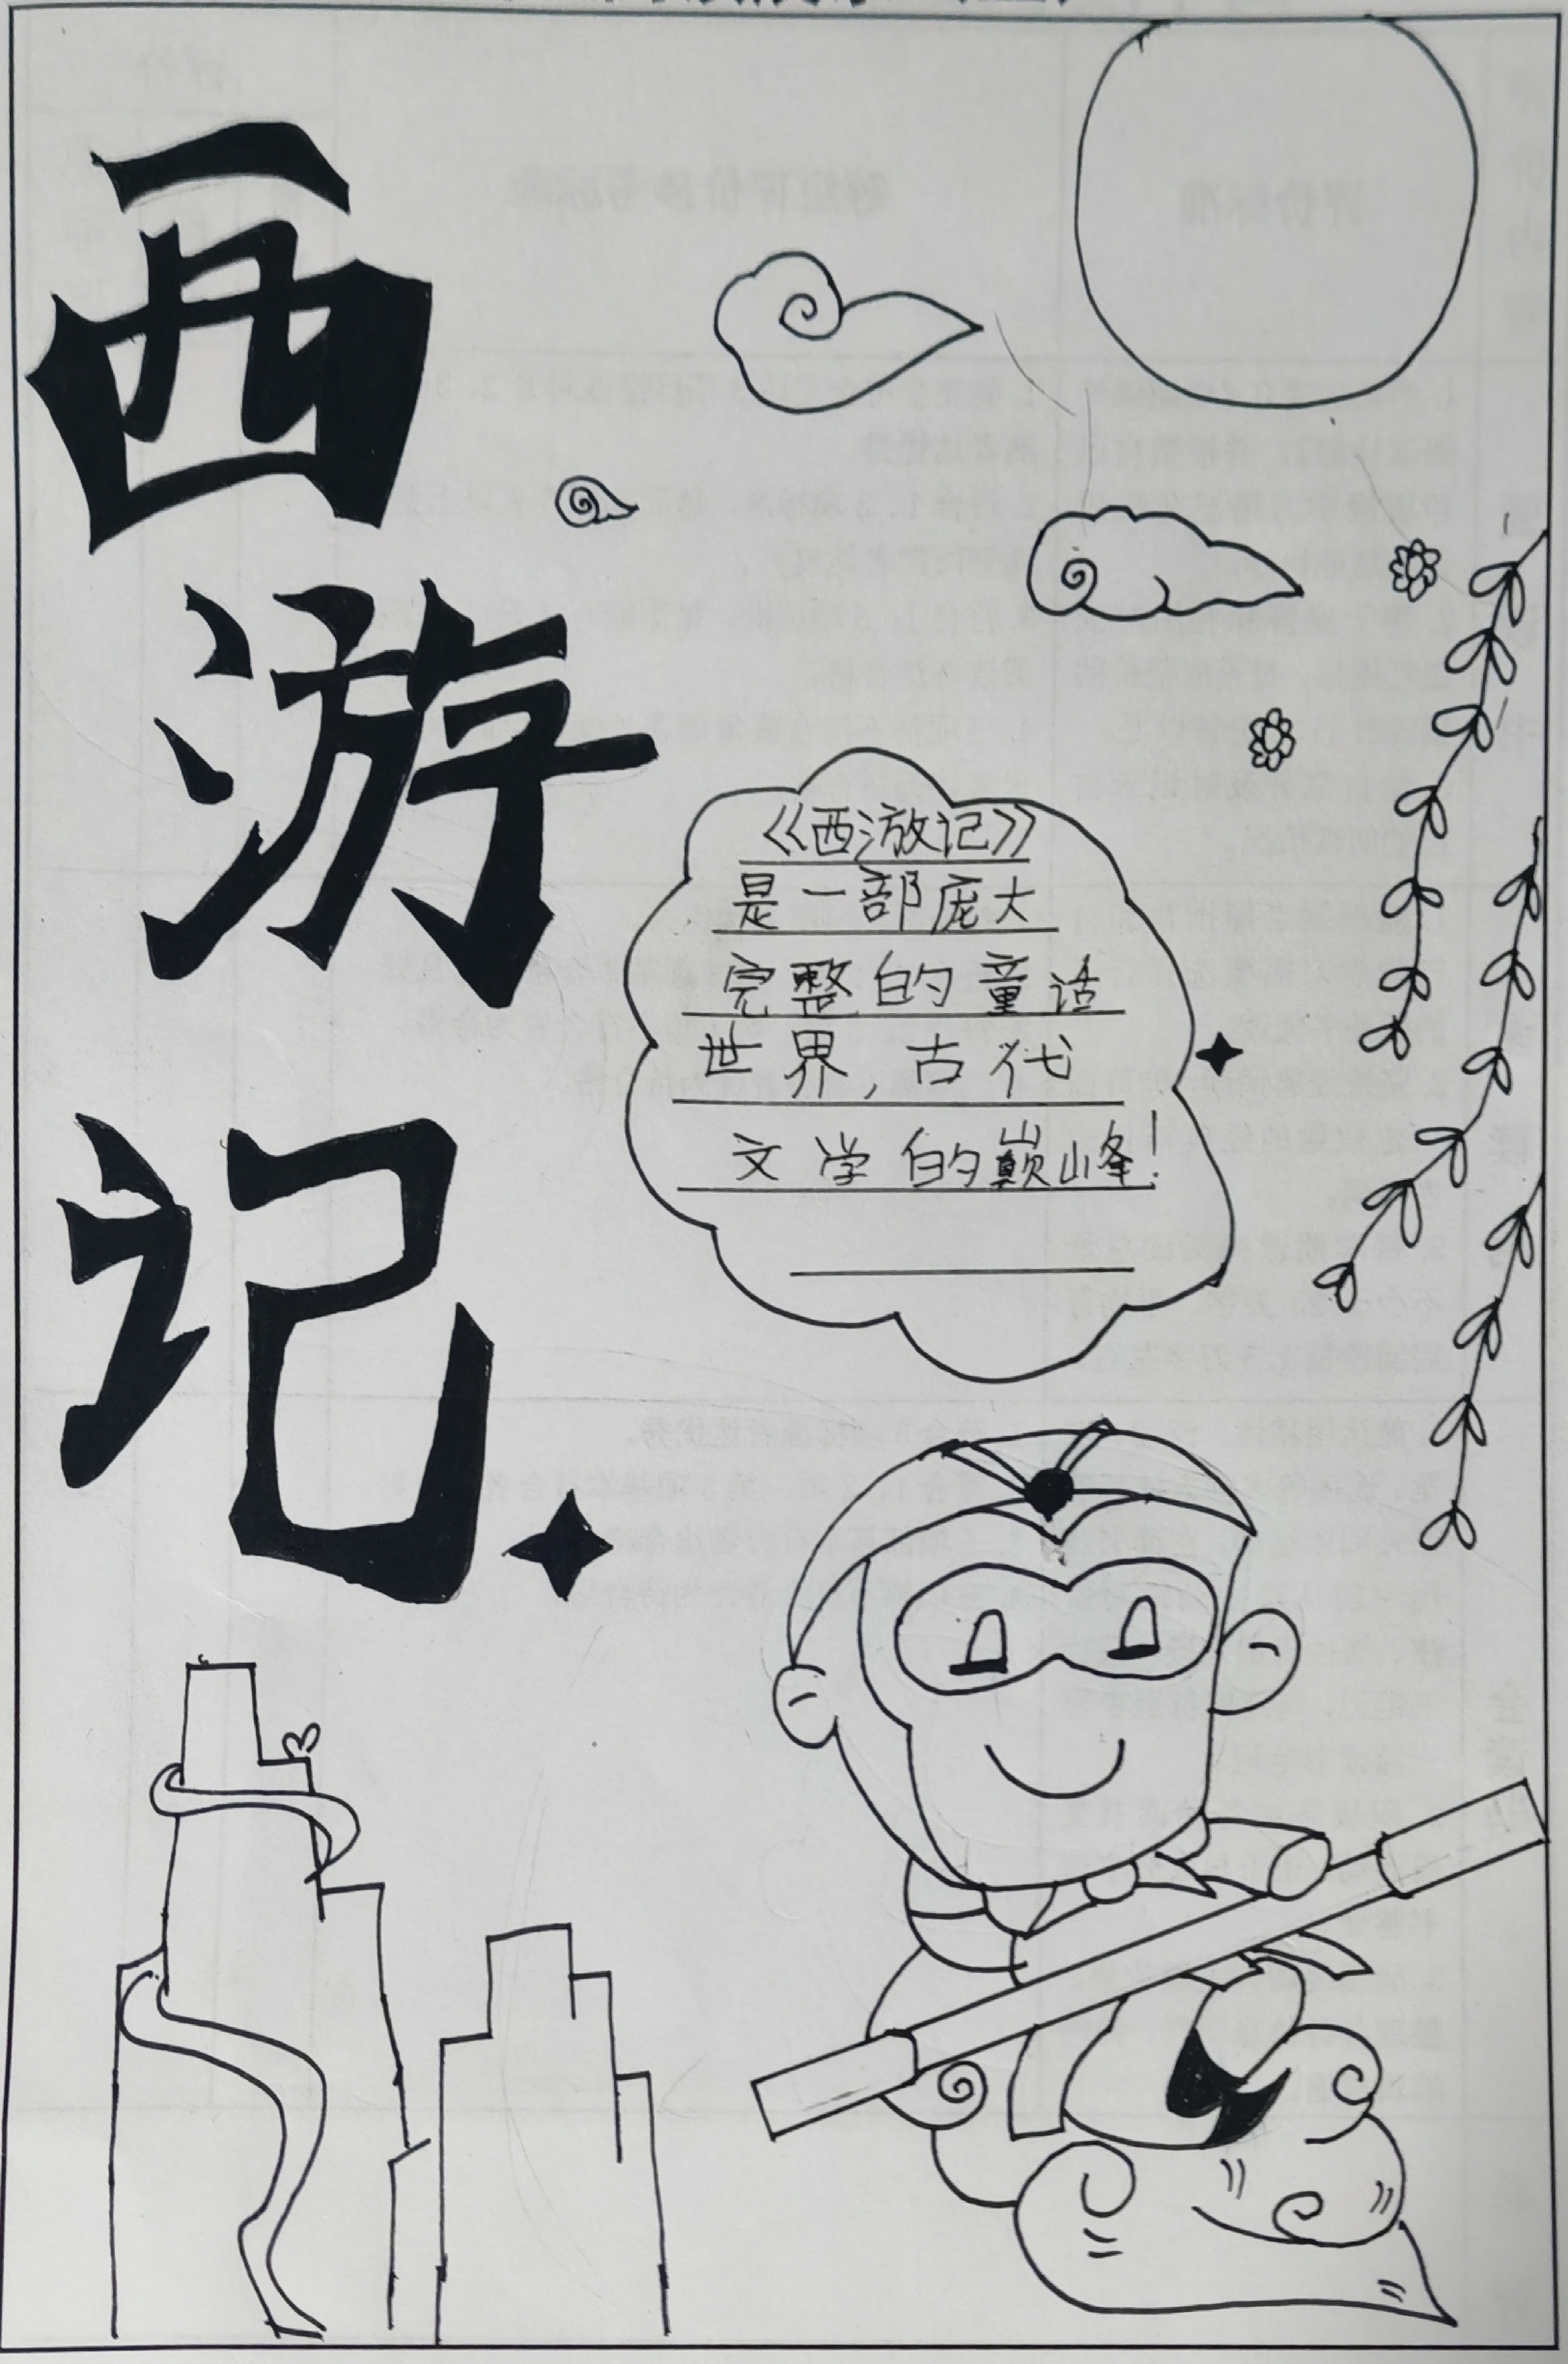 西
游
记
《西游记》
是一部庞大
完整的童话
世界,古代
文学的巅峰!